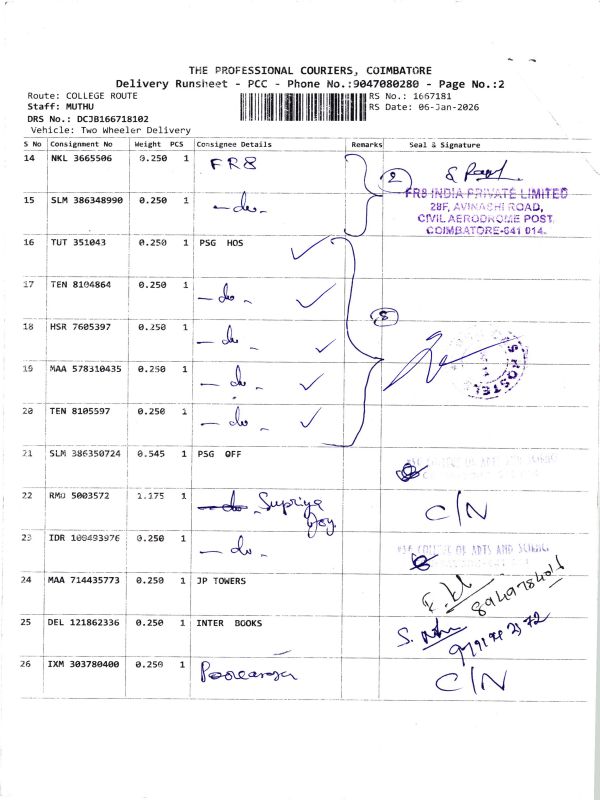 THE PROFESSIONAL COURIERS, COIMBATORE
Delivery Runsheet - PCC - Phone No.:9047080280 - Page No.:2
Route: COLLEGE ROUTE RS No.: 1667181
Staff: MUTHU RS Date: 06-Jan-2026
DRS No.: DCJB166718102
Vehicle: Two Wheeler Delivery
S No Consignment No Weight PCS Consignee Details Remarks Seal & Signature
14 NKL 3665506 0.250 1 FR8 2
FR8 INDIA PRIVATE LIMITED
28F, AVINASHI ROAD,
CIVIL AERODROME POST,
COIMBATORE-641 014.
15 SLM 386348990 0.250 1 - do -
16 TUT 351043 0.250 1 PSG HOS
17 TEN 8104864 0.250 1 - do -
18 HSR 7605397 0.250 1 - do -
19 MAA 578310435 0.250 1 - do -
20 TEN 8105597 0.250 1 - do -
21 SLM 386350724 0.545 1 PSG OFF
22 RMD 5003572 1.175 1 Supriya Joy C/N
23 IDR 100493976 0.250 1 - do - PSG COLLEGE OF ARTS AND SCIENCE
24 MAA 714435773 0.250 1 JP TOWERS
25 DEL 121862336 0.250 1 INTER BOOKS
26 IXM 303780400 0.250 1 C/N